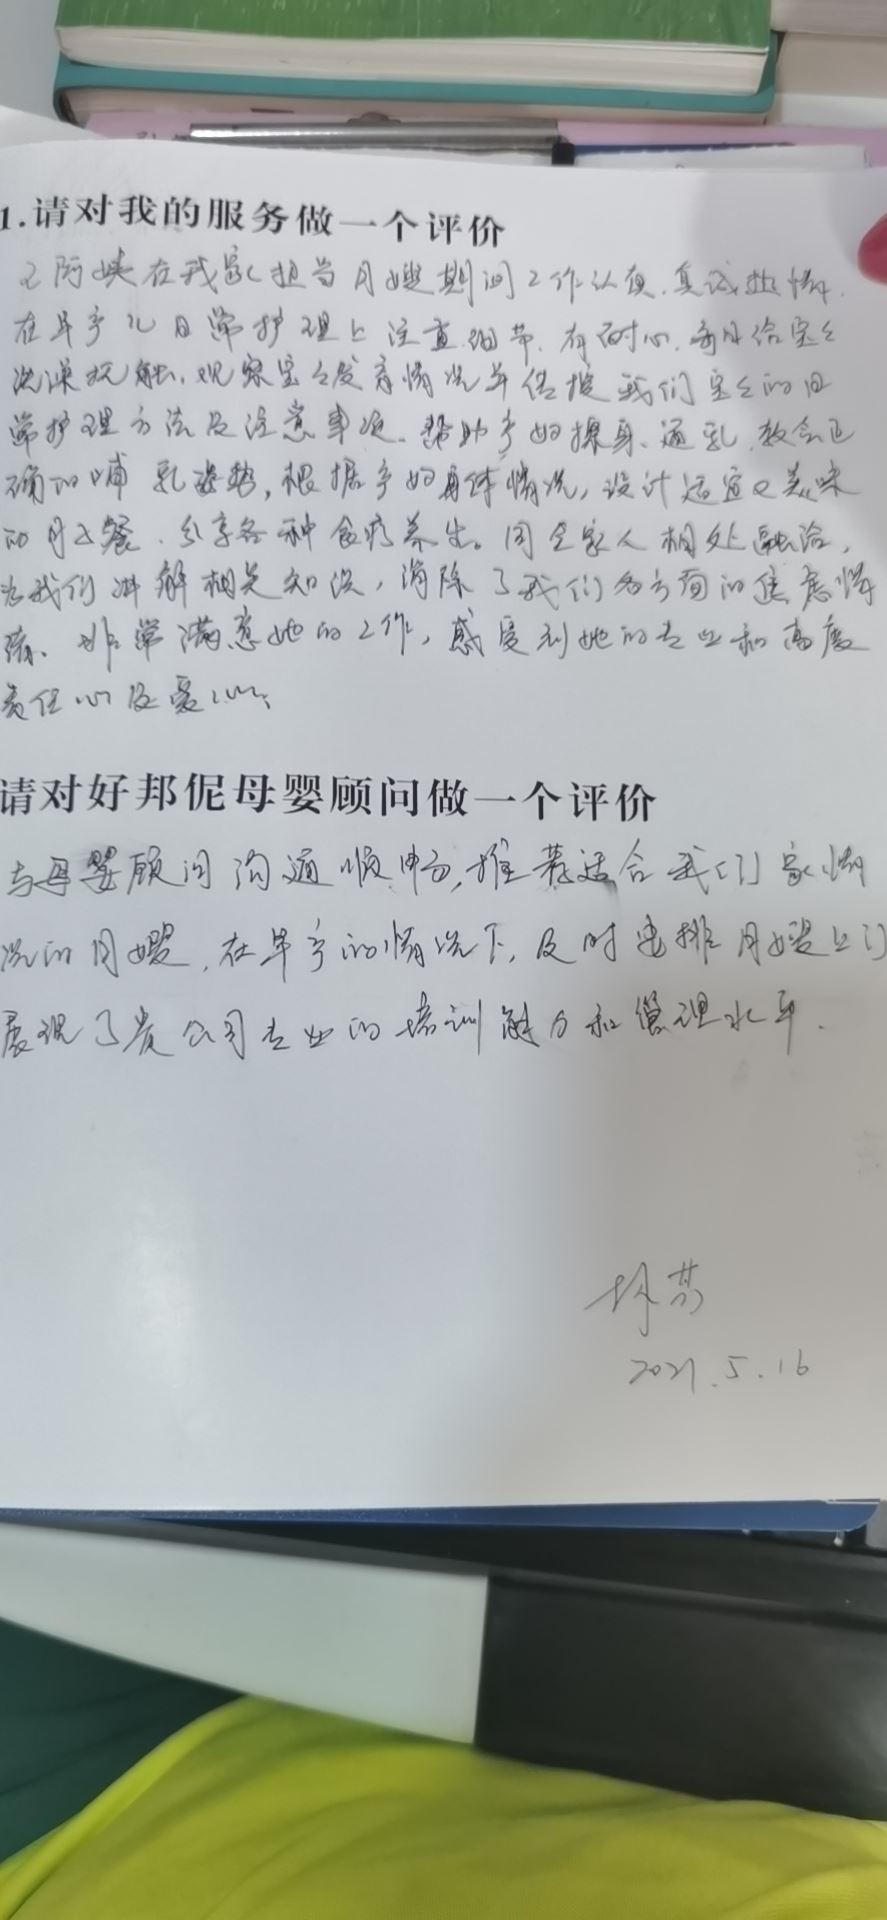 1.请对我的服务做一个评价
阿姨在我家担当月嫂期间工作认真、真诚热情、
在早产儿日常护理上注重细节、有耐心、每日给宝宝
洗澡抚触、观察宝宝发育情况并传授我们宝宝的日
常护理方法及注意事项、帮助产妇擦身、通乳、教会正
确的哺乳姿势，根据产妇身体情况，设计适宜又美味
的月子餐、分享各种食疗养生。同全家人相处融洽，
为我们讲解相关知识，消除了我们各方面的焦虑情
绪、非常满意她的工作，感受到她的专业和高度
责任心及爱心、
请对好邦伲母婴顾问做一个评价
与母婴顾问沟通顺畅，推荐适合我们家情
况的月嫂，在早产的情况下，及时安排月嫂上门
展现了贵公司专业的培训能力和管理水平.
2021.5.16